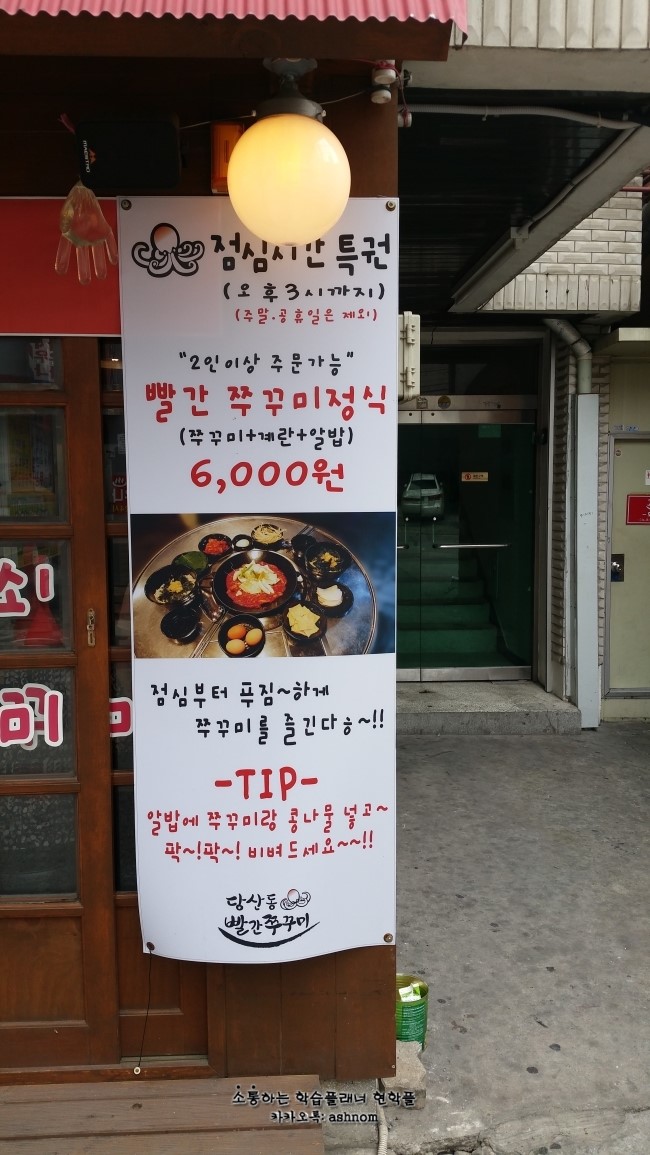 점심시간 특권
(오후3시까지)
(주말.공휴일은 제외)
"2인이상 주문가능"
빨간 쭈꾸미정식
(쭈꾸미+계란+알밥)
6,000원
점심부터 푸짐~하게
쭈꾸미를 즐긴다ㅎ~!!
-TIP-
알밥에 쭈꾸미랑 콩나물 넣고~
팍~!팍~! 비벼드세요~~!!
당산동
빨간쭈꾸미
소통하는 학습플래너 현학플
카카오톡: ashnom